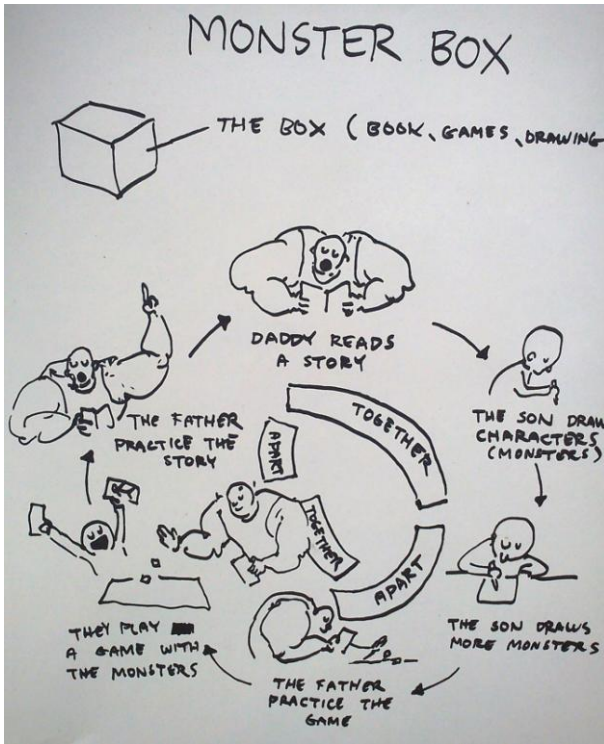 MONSTER BOX
THE BOX (BOOK, GAMES, DRAWING
DADDY READS
A STORY
THE SON DRAW
CHARACTERS
(MONSTERS)
THE SON DRAWS
MORE MONSTERS
THE FATHER
PRACTICE THE
GAME
THEY PLAY
A GAME WITH
THE MONSTERS
THE FATHER
PRACTICE THE
STORY
TOGETHER
APART
TOGETHER
APART